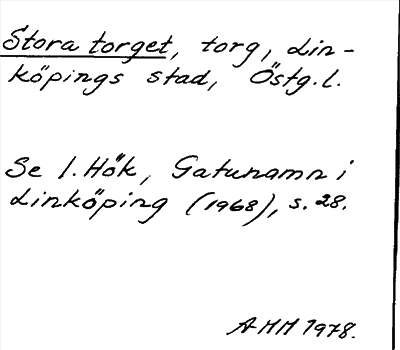 Stora torget, torg, Lin-
köpings stad, Östg.l.
Se I. Hök, Gatunamn i
Linköping (1968), s. 28.
AMM 1978.